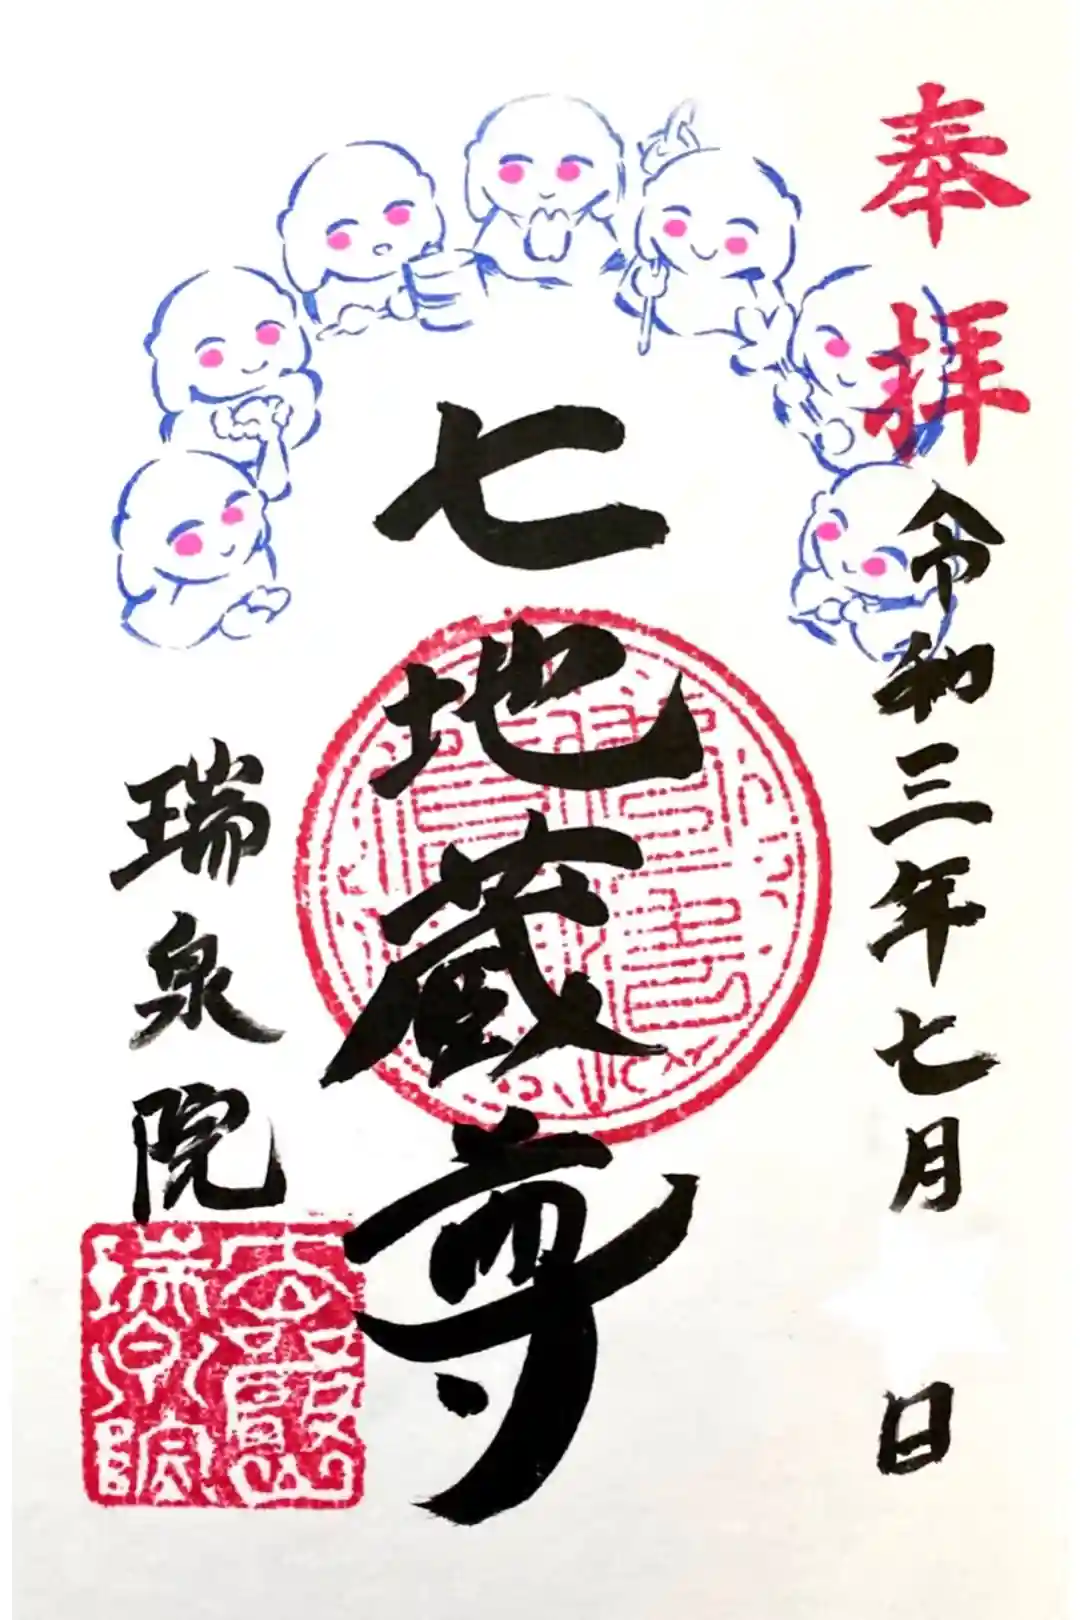 奉拝
令和三年七月 日
七地蔵尊
瑞泉院
瑞泉院